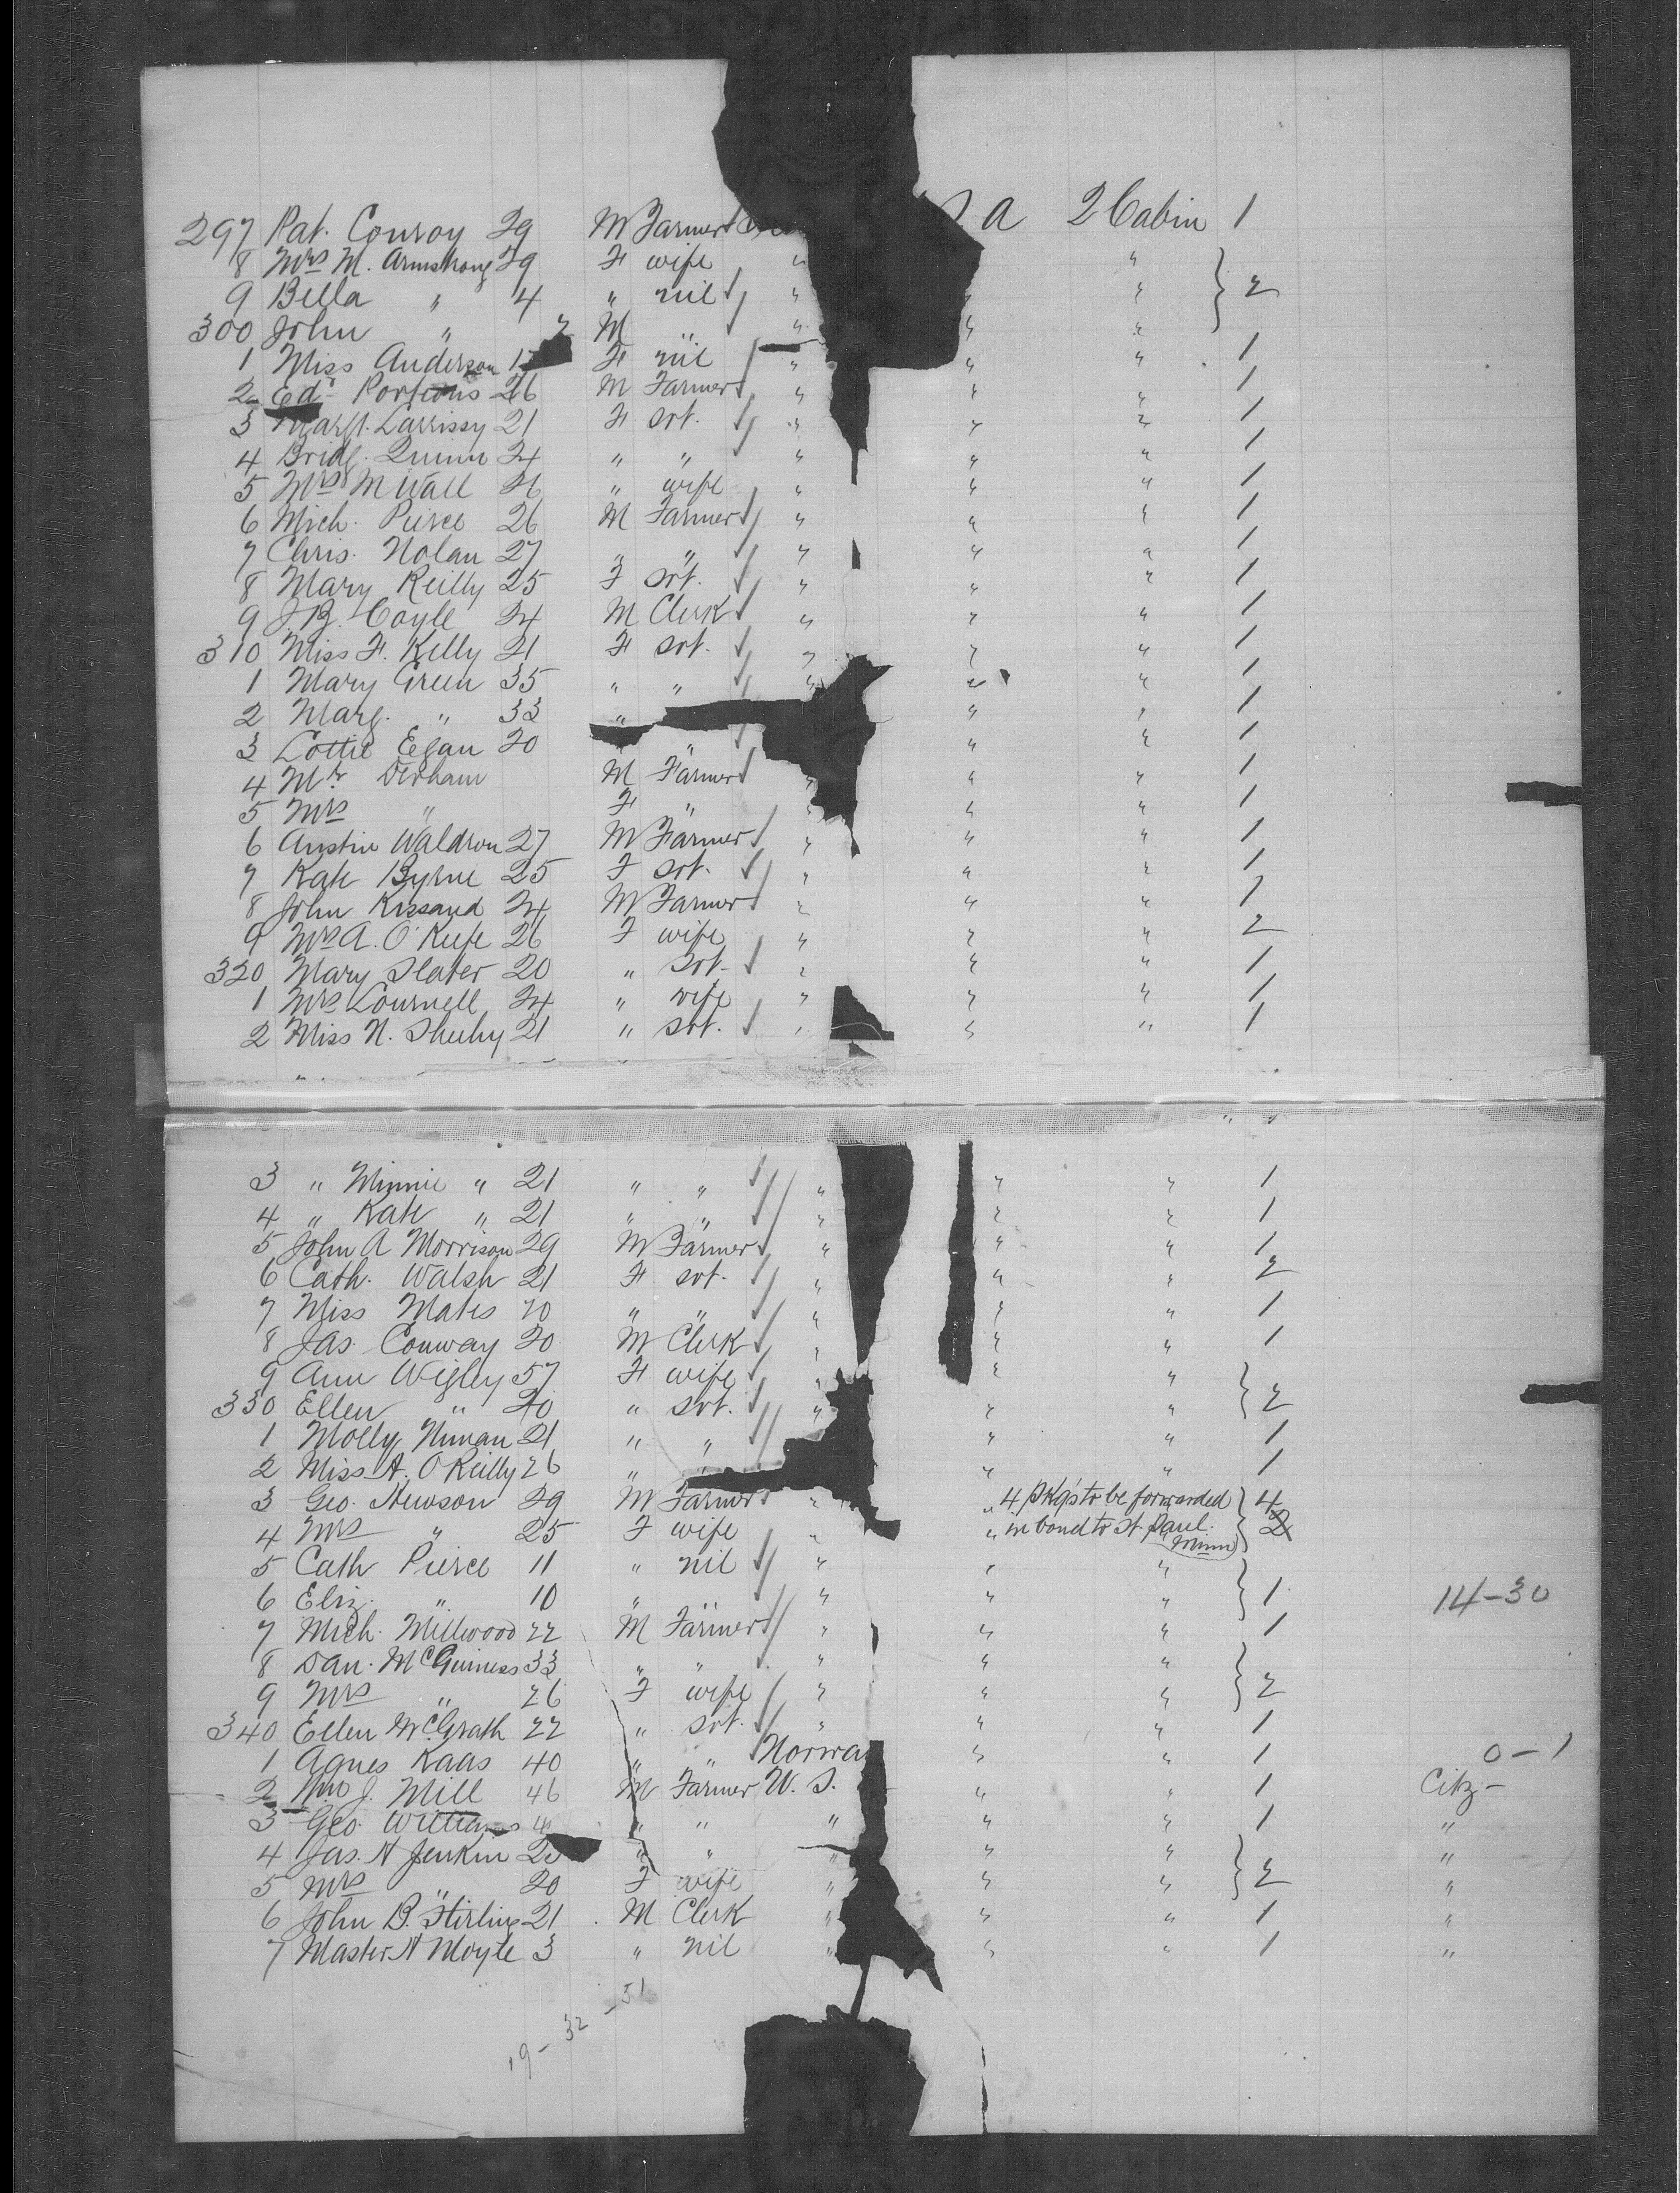 297 Pat. Conroy 29 M Farmer 2 Cabin 1
8 Mrs M. Armstrong 29 F wife " "
9 Bella " 4 " nil " " " } 2
300 John " M " " " "
1 Miss Anderson F nil " " " 1
2 Edd Porteous 26 M Farmer " " " 1
3 Margt. Larrissy 21 F svt. " " " 1
4 Bridg. Quinn 24 " " " " " 1
5 Mrs M Wall 26 " wife " " " 1
6 Mich. Pierce 26 M Farmer " " " 1
7 Chris. Nolan 27 " " " " " 1
8 Mary Reilly 25 F svt. " " " 1
9 J. B. Coyle 24 M Clerk " " " 1
310 Miss F. Kelly 21 F svt. " " " 1
1 Mary Green 35 " " " " " 1
2 Marg. " 33 " " " 1
3 Lottie Egan 20 " " " 1
4 Mr. Derham M Farmer " " " 1
5 Mrs " F " " " " 1
6 Austin Waldron 27 M Farmer " " " 1
7 Kate Byrne 25 F svt. " " " 1
8 John Kissand 24 M Farmer " " " 1
9 Mrs A. O'Keefe 26 F wife " " " 2
320 Mary Slater 20 " svt. " " " 1
1 Mrs Cournell 24 " wife " " " 1
2 Miss N. Sheehy 21 " svt. " " " 1
3 " Minnie " 21 " " " " " 1
4 " Kate " 21 " " " " " 1
5 John A Morrison 29 M Farmer " " " 1
6 Cath. Walsh 21 F svt. " " " 2
7 Miss Mates 20 " " " " " 1
8 Jas. Conway 20 M Clerk " " " 1
9 Ann Wigley 57 F wife " " "
330 Ellen " 20 " svt. " " " } 2
1 Molly 21 " " " " 1
2 Miss A. O'Reilly 26 " " " " 1
3 Geo. Hewson 29 M Farmer " " 4 pkgs to be forwarded 4
4 Mrs " 25 F wife " " in bond to St. Paul. Minn } 2
5 Cath Pierce 11 " nil " " "
6 Eliz. " 10 " " " " " } 1 14-30
7 Mich. Millwood 22 M Farmer " " " 1
8 Dan. McGuiness 33 " " " " "
9 Mrs " 26 F wife " " " } 2
340 Ellen McGrath 22 " svt. " " " 1
1 Agnes Kaas 40 " " Norwa " " 1 0-1
2 Wm J. Mill 46 M Farmer U. S. " " 1 Citz-
3 Geo. Williams " " " " " 1 "
4 Jas. H Jenkin " " " " " "
5 Mrs " 20 F wife " " " } 2 "
6 John B. Stirling 21 M Clerk " " " 1 "
7 Master H Moyle 3 " nil " " " 1 "
19-32-51